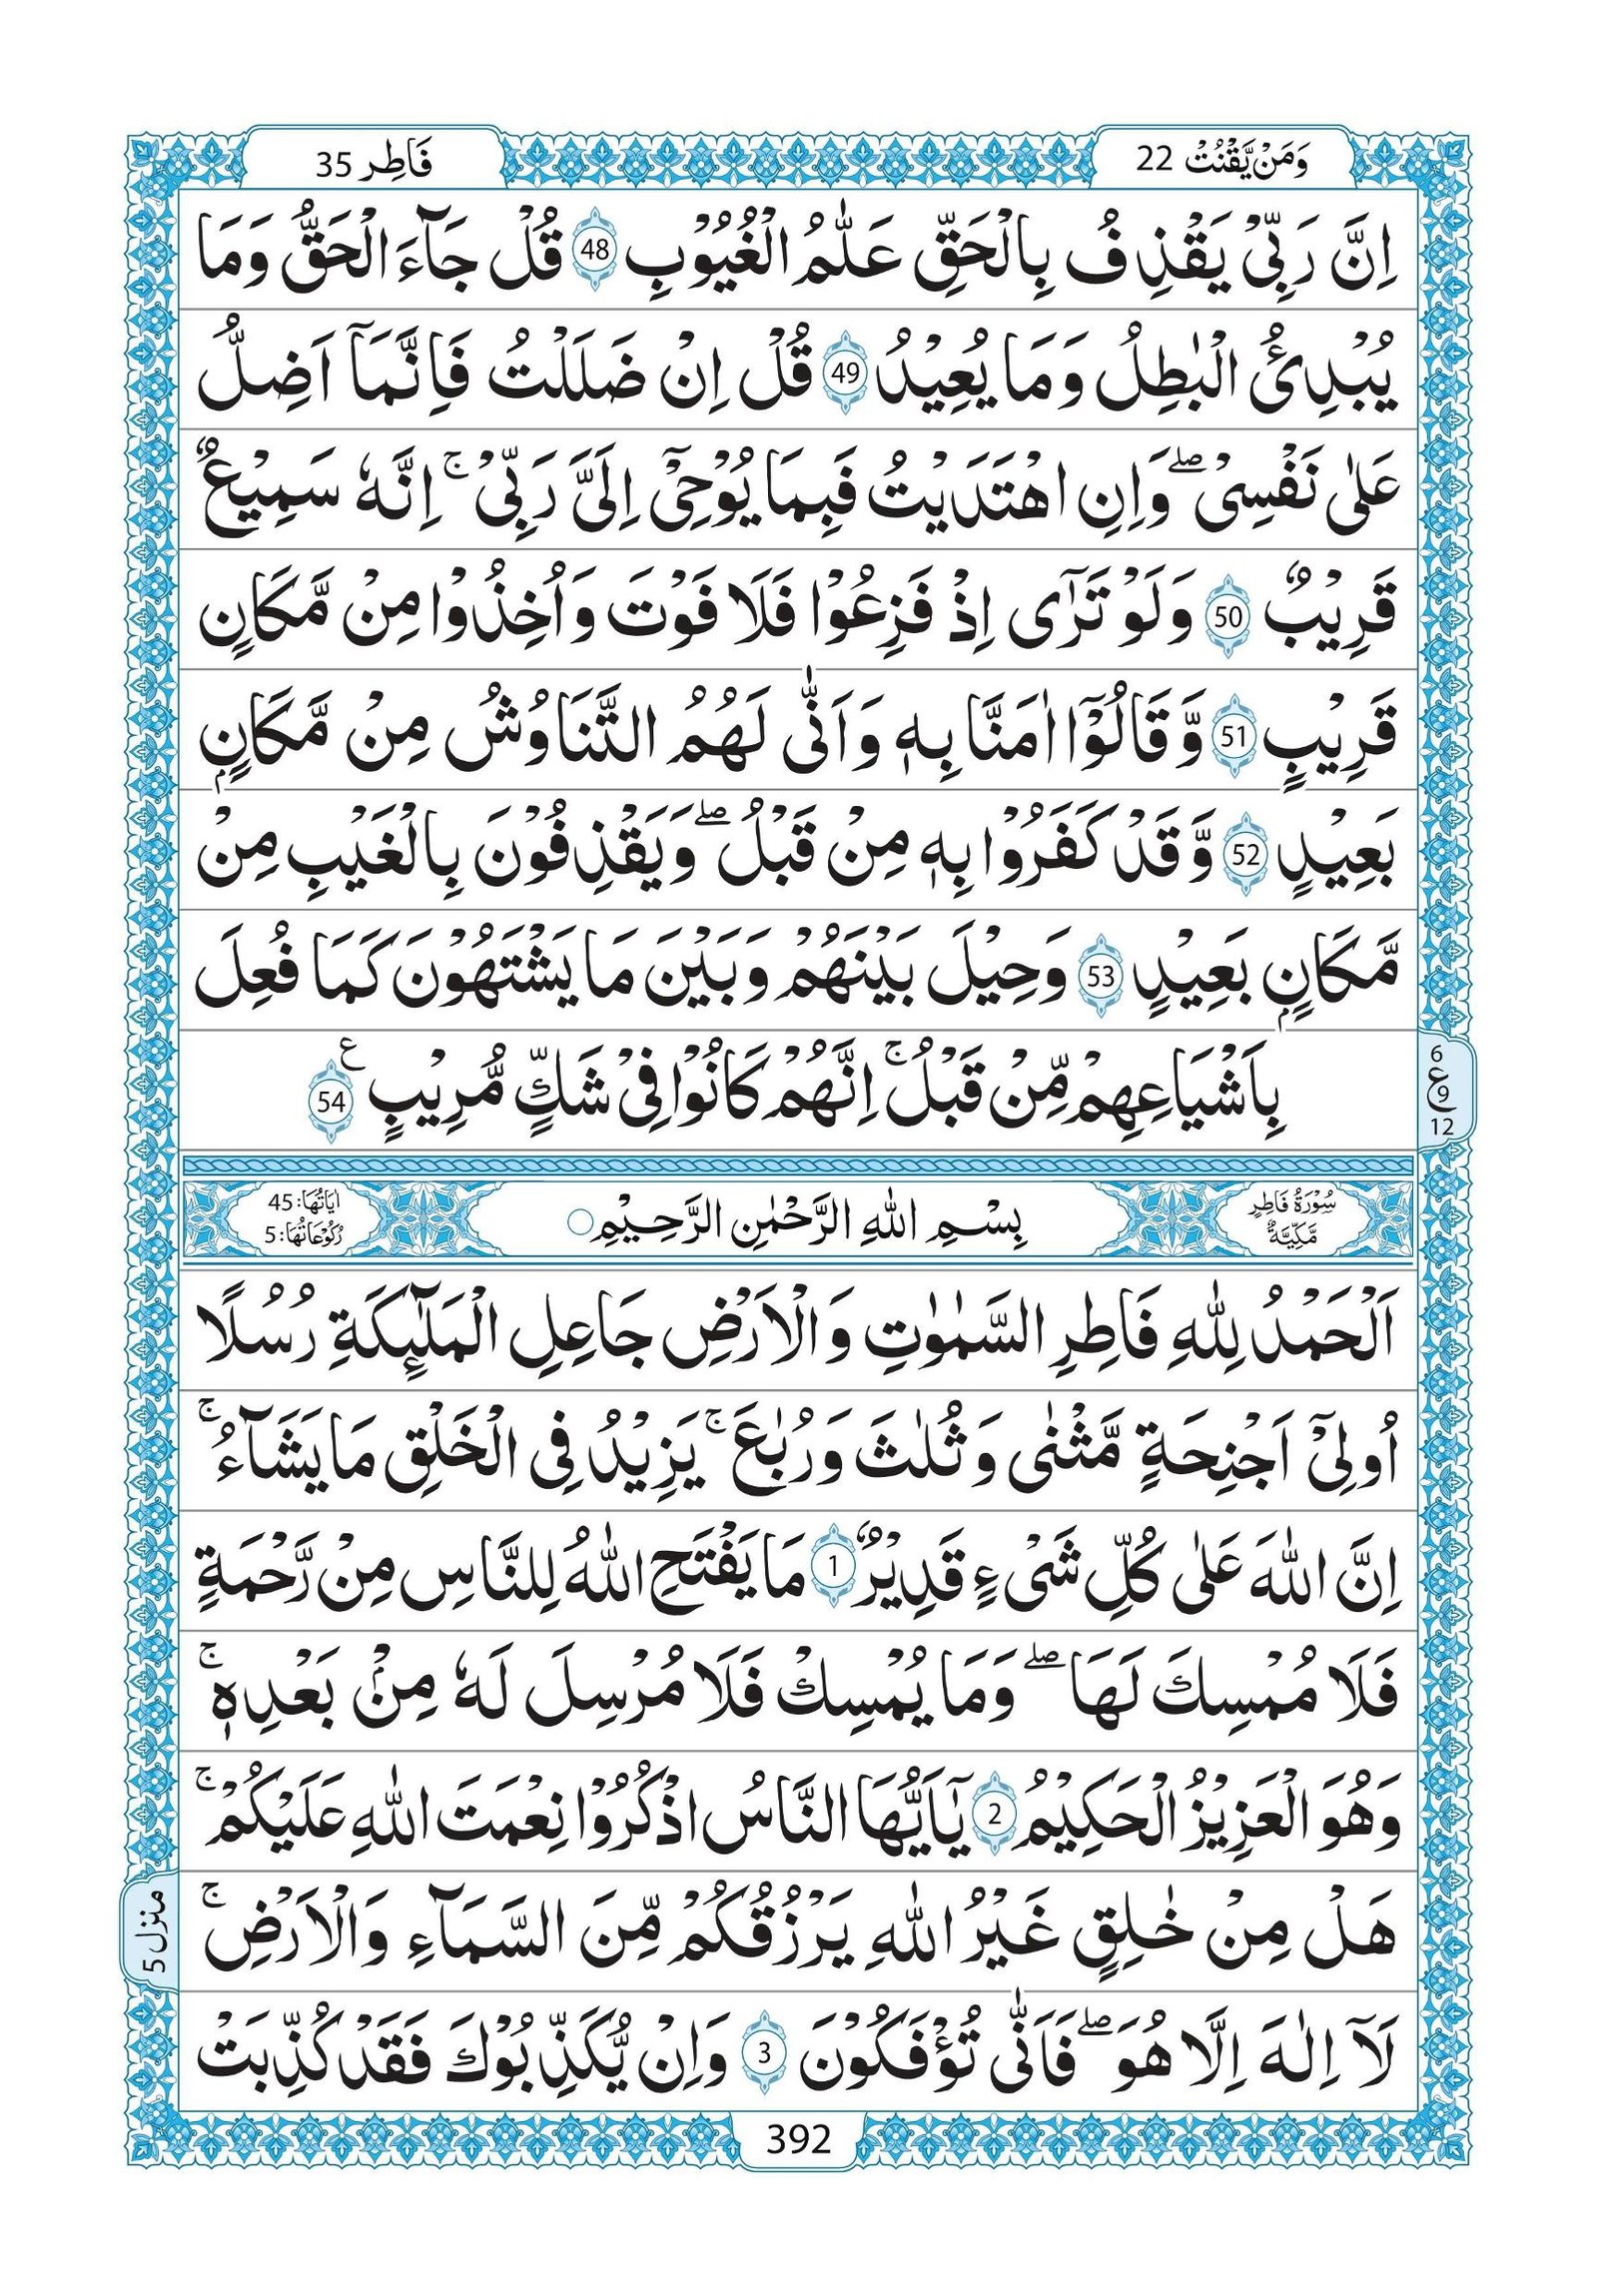 وَمَنْ يَّقْنُتْ 22
فَاطِر 35
اِنَّ رَبِّيْ يَقْذِفُ بِالْحَقِّ عَلَّامُ الْغُيُوْبِ 48 قُلْ جَآءَ الْحَقُّ وَمَا
يُبْدِئُ الْبٰطِلُ وَمَا يُعِيْدُ 49 قُلْ اِنْ ضَلَلْتُ فَاِنَّمَآ اَضِلُّ
عَلٰى نَفْسِيْ ۖ وَاِنِ اهْتَدَيْتُ فَبِمَا يُوْحِيْٓ اِلَيَّ رَبِّيْ ۚ اِنَّهٗ سَمِيْعٌ
قَرِيْبٌ 50 وَلَوْ تَرٰٓى اِذْ فَزِعُوْا فَلَا فَوْتَ وَاُخِذُوْا مِنْ مَّكَانٍ
قَرِيْبٍ 51 وَّقَالُوْٓا اٰمَنَّا بِهٖ وَاَنّٰى لَهُمُ التَّنَاوُشُ مِنْ مَّكَانٍۢ
بَعِيْدٍ 52 وَّقَدْ كَفَرُوْا بِهٖ مِنْ قَبْلُ ۖ وَيَقْذِفُوْنَ بِالْغَيْبِ مِنْ
مَّكَانٍۢ بَعِيْدٍ 53 وَحِيْلَ بَيْنَهُمْ وَبَيْنَ مَا يَشْتَهُوْنَ كَمَا فُعِلَ
بِاَشْيَاعِهِمْ مِّنْ قَبْلُ ۚ اِنَّهُمْ كَانُوْا فِيْ شَكٍّ مُّرِيْبٍ ع 54
6
ع
9
12
سُوْرَةُ فَاطِرٍ مَّكِّيَّةٌ
بِسْمِ اللهِ الرَّحْمٰنِ الرَّحِيْمِ
اٰيَاتُهَا: 45
رُكُوْعَاتُهَا: 5
اَلْحَمْدُ لِلّٰهِ فَاطِرِ السَّمٰوٰتِ وَالْاَرْضِ جَاعِلِ الْمَلٰٓئِكَةِ رُسُلًا
اُولِيْٓ اَجْنِحَةٍ مَّثْنٰى وَثُلٰثَ وَرُبٰعَ ۚ يَزِيْدُ فِي الْخَلْقِ مَا يَشَآءُ ۚ
اِنَّ اللهَ عَلٰى كُلِّ شَيْءٍ قَدِيْرٌ 1 مَا يَفْتَحِ اللهُ لِلنَّاسِ مِنْ رَّحْمَةٍ
فَلَا مُمْسِكَ لَهَا ۖ وَمَا يُمْسِكْ فَلَا مُرْسِلَ لَهٗ مِنْۢ بَعْدِهٖ ۚ
وَهُوَ الْعَزِيْزُ الْحَكِيْمُ 2 يٰٓاَيُّهَا النَّاسُ اذْكُرُوْا نِعْمَتَ اللهِ عَلَيْكُمْ ۚ
هَلْ مِنْ خٰلِقٍ غَيْرُ اللهِ يَرْزُقُكُمْ مِّنَ السَّمَآءِ وَالْاَرْضِ ۚ
منزل 5
لَآ اِلٰهَ اِلَّا هُوَ ۖ فَاَنّٰى تُؤْفَكُوْنَ 3 وَاِنْ يُّكَذِّبُوْكَ فَقَدْ كُذِّبَتْ
392